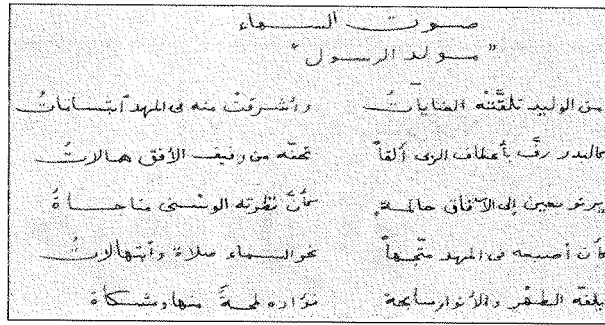 صوت السماء
"مولد الرسول"
من الوليد تلقَّتْهُ العنايات وأشرقتْ منه فى المهد ابتسامات
كالبدر رفَّ بأعطاف الربى ألقاً تحفّه من رفيف الأفق هالات
يرنو بعين إلى الآفاق حالمة كأنّ نظرته الوسنى مناجاة
كأن أصبعه فى المهد متّجهاً نحو السماء صلاة وابتهالات
يلفّه الطهر والأنوار سابحة فؤاده لمحة منها ومشكاة